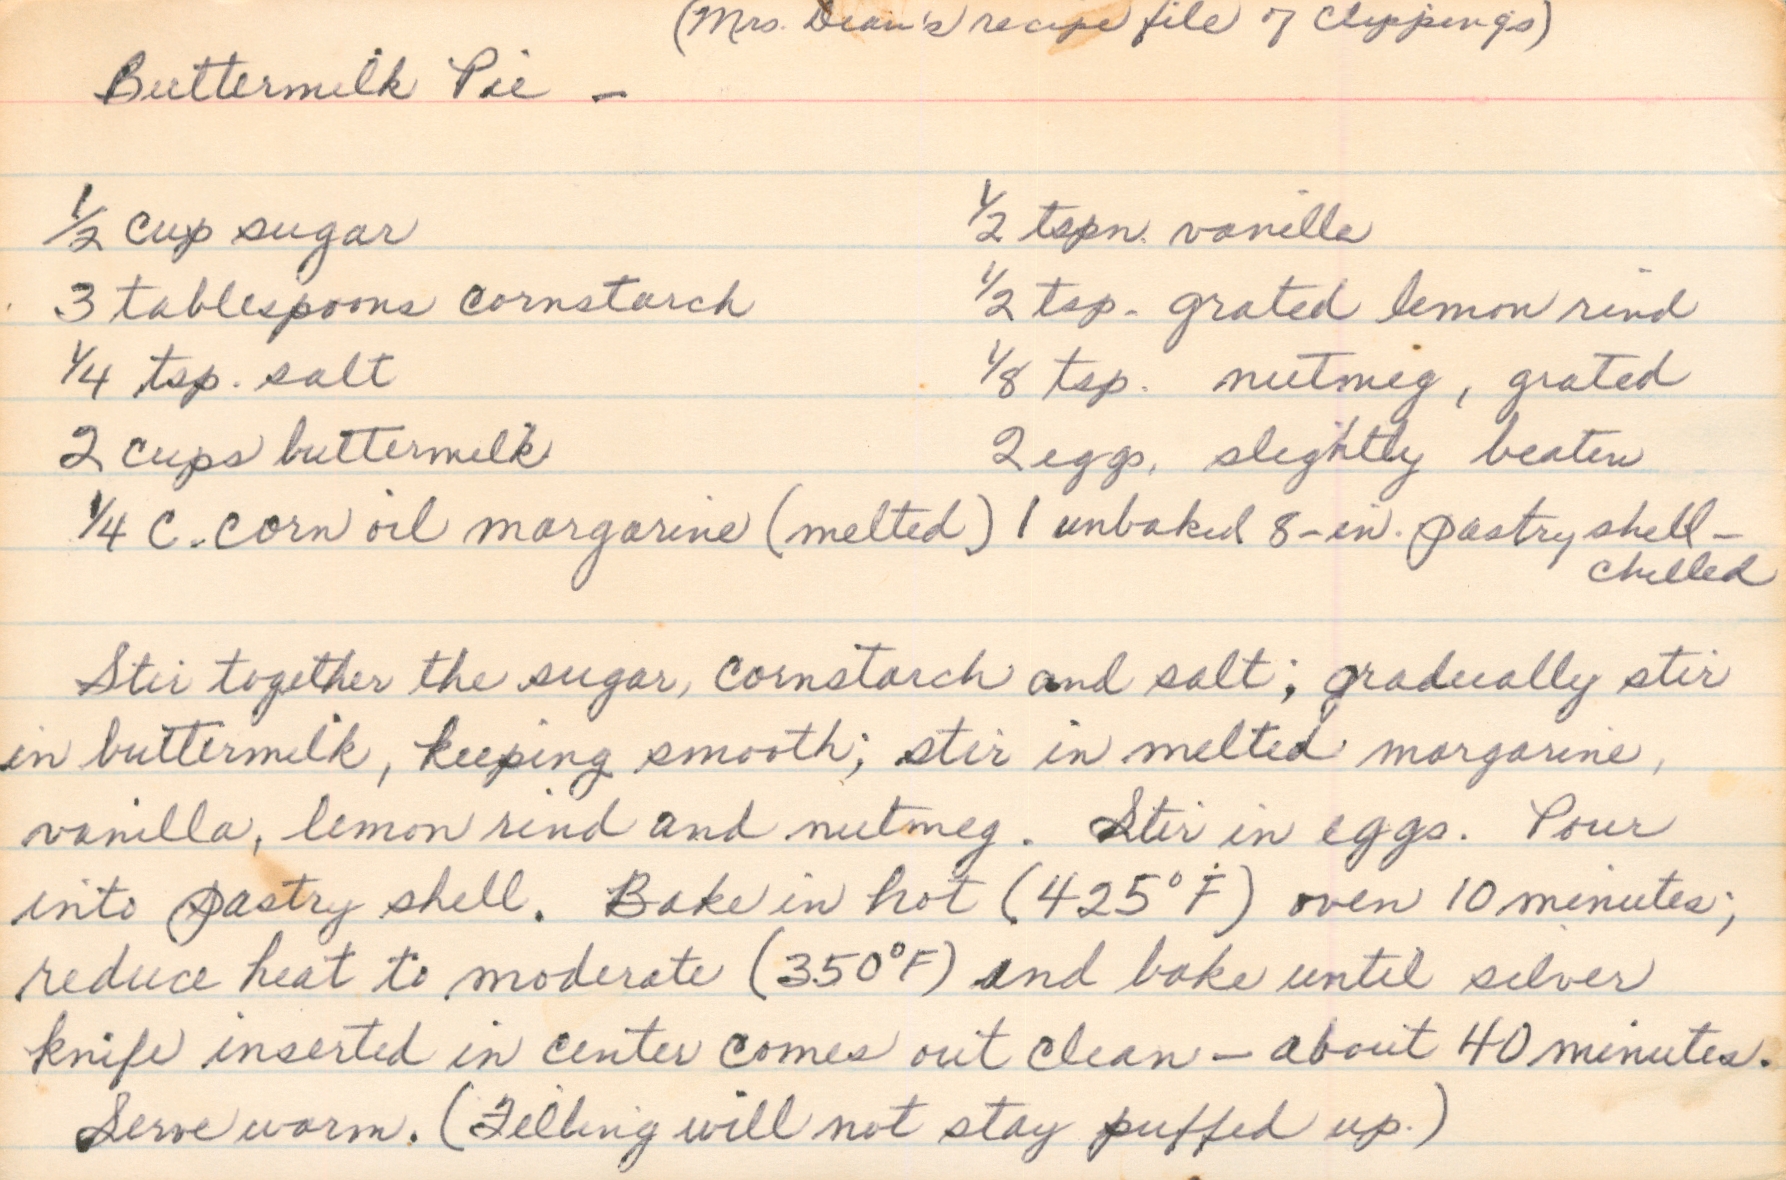 (Mrs. Dean's recipe file of Clippings)
Buttermilk Pie –
1/2 cup sugar
3 tablespoons cornstarch
1/4 tsp. salt
2 cups buttermilk
1/4 C. corn oil margarine (melted)
1/2 tspn. vanilla
1/2 tsp. grated lemon rind
1/8 tsp. nutmeg, grated
2 eggs, slightly beaten
1 unbaked 8-in. pastry shell –
chilled
Stir together the sugar, cornstarch and salt; gradually stir
in buttermilk, keeping smooth; stir in melted margarine,
vanilla, lemon rind and nutmeg. Stir in eggs. Pour
into pastry shell. Bake in hot (425°F) oven 10 minutes;
reduce heat to moderate (350°F) and bake until silver
knife inserted in center comes out clean – about 40 minutes.
Serve warm. (Filling will not stay puffed up.)